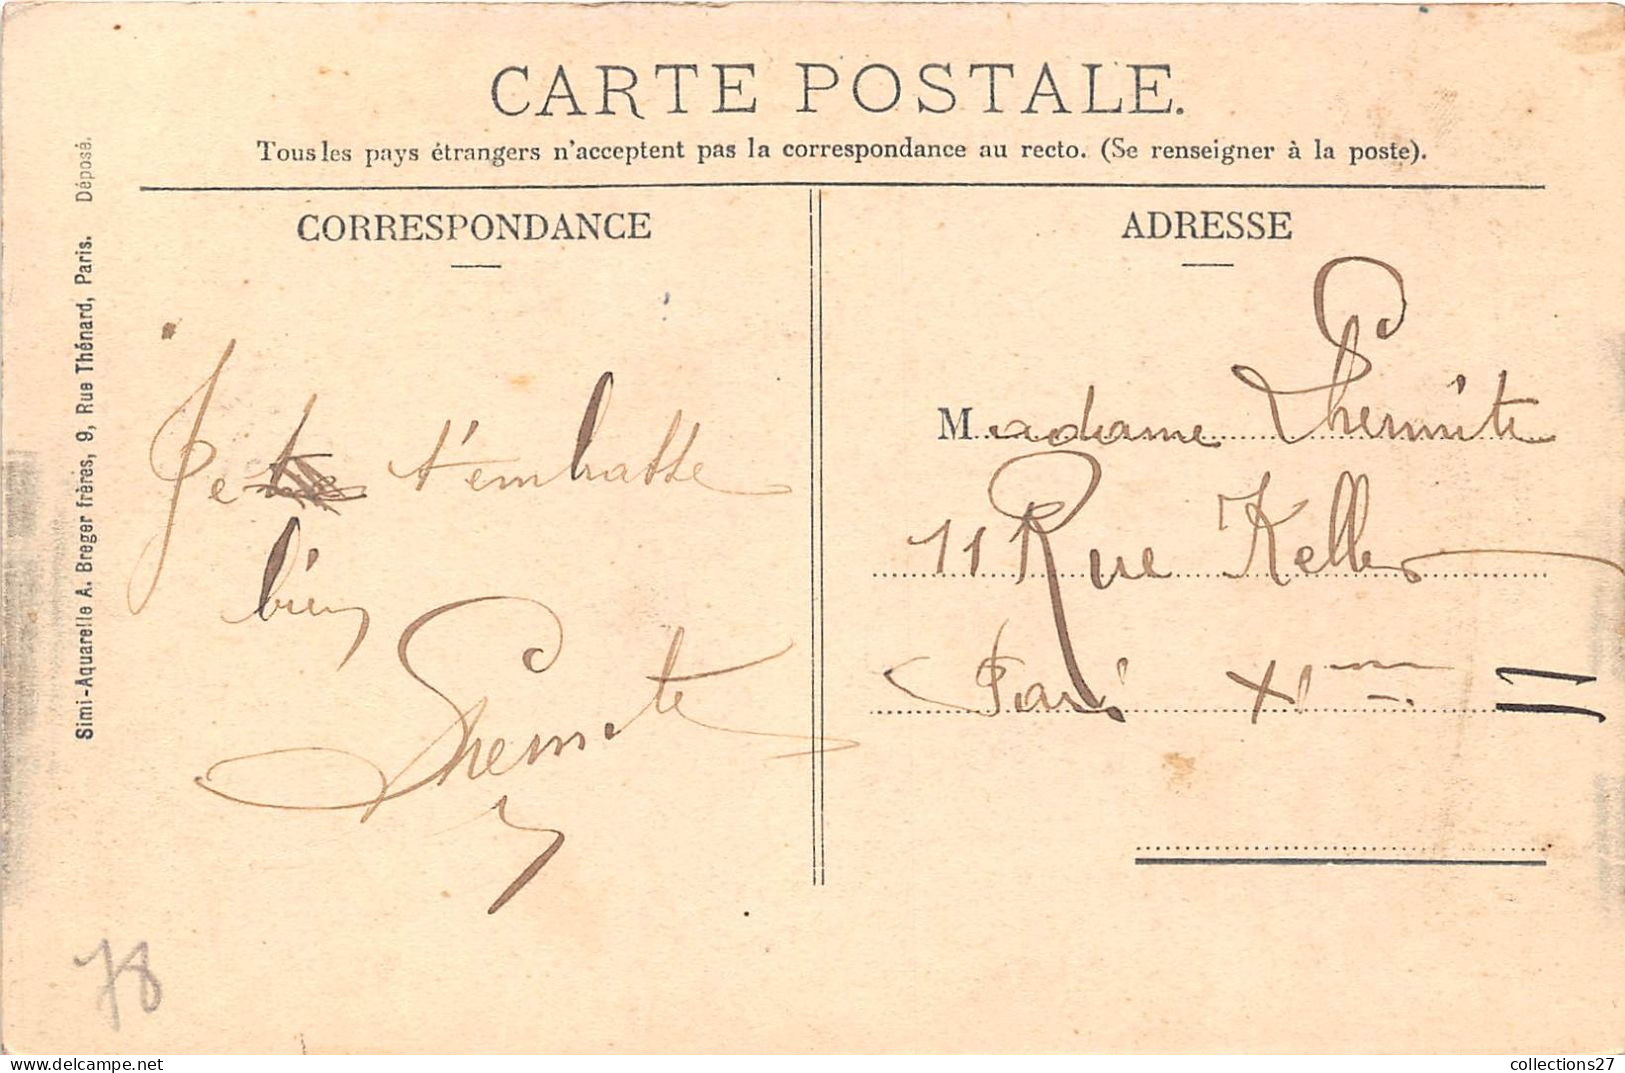 CARTE POSTALE.
Tous les pays étrangers n'acceptent pas la correspondance au recto. (Se renseigner à la poste).
Simi-Aquarelle A. Breger frères, 9, Rue Thénard, Paris. Déposé.
CORRESPONDANCE
Je t'embrasse
bien
Lhermite
ADRESSE
Madame Lhermite
11 Rue Keller
Paris XIme
11
78
delcampe.net
collections27